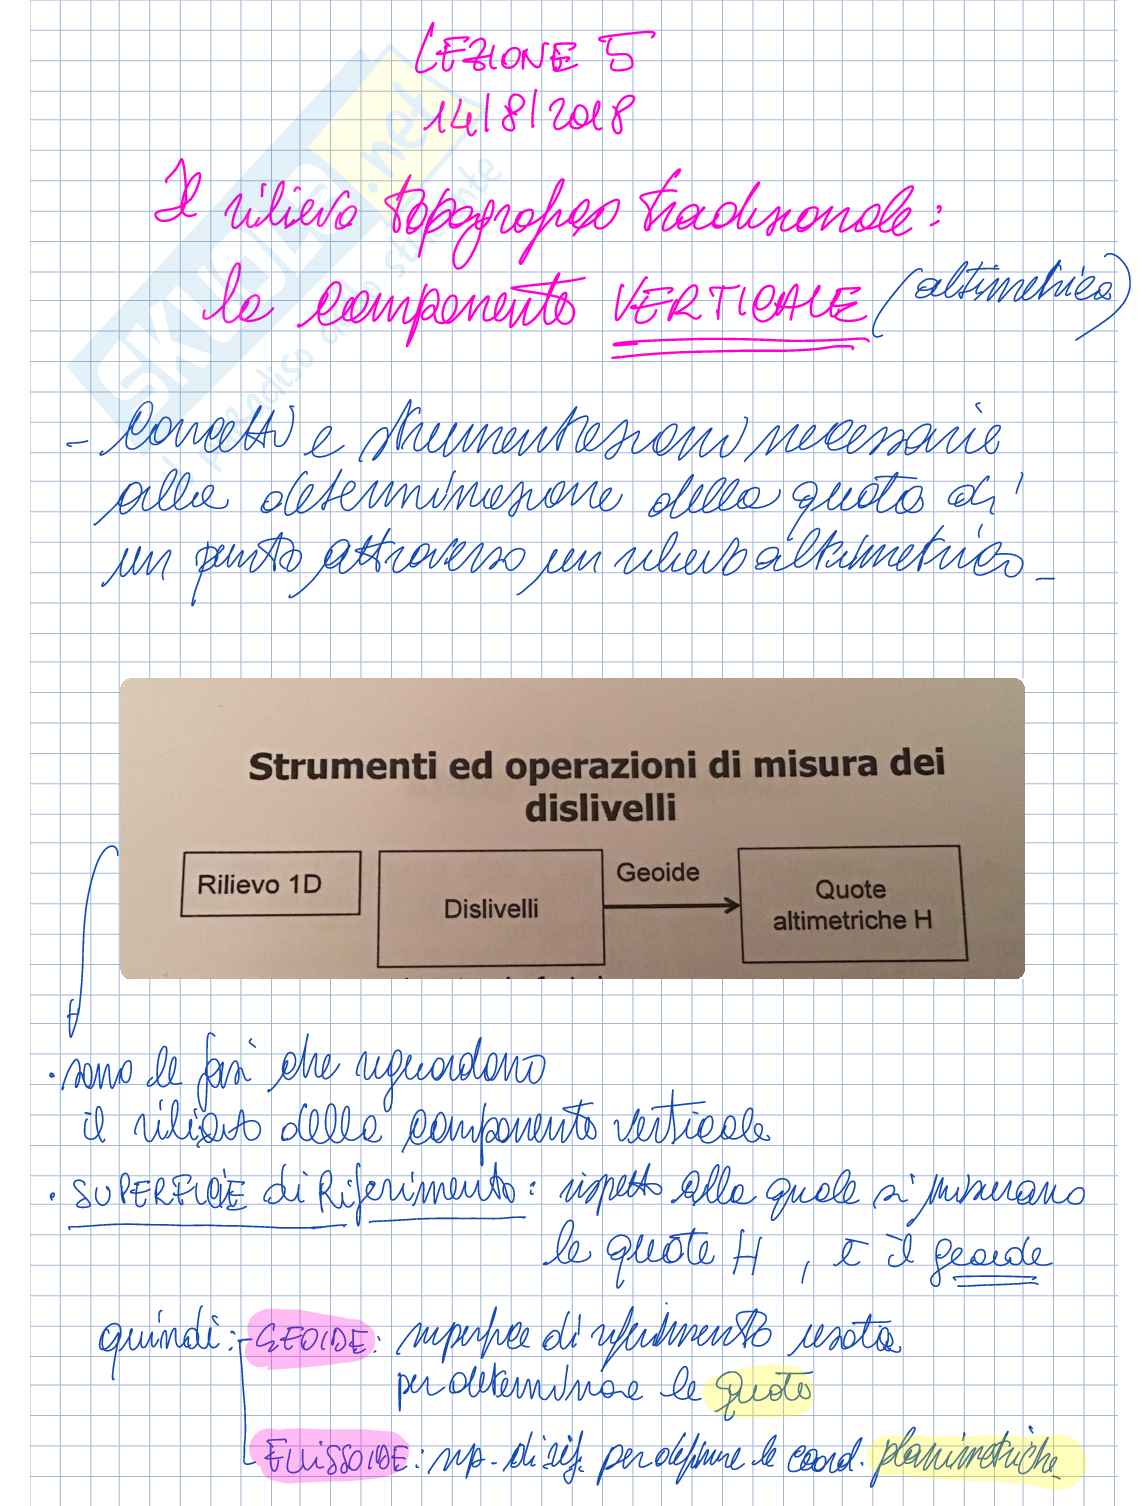 LEZIONE 5
14/8/2018
Il rilievo topografico tradizionale:
la componente VERTICALE (altimetrica)
- Concetti e strumentazioni necessarie
alla determinazione della quota di
un punto attraverso un rilievo altimetrico -
Strumenti ed operazioni di misura dei
dislivelli
Rilievo 1D
Dislivelli
Geoide
Quote
altimetriche H
· sono le fasi che riguardano
il rilievo della componente verticale
· SUPERFICIE di Riferimento: rispetto alla quale si misurano
le quote H, è il geoide
quindi: - GEOIDE: superficie di riferimento usata
per determinare le quote
ELLISSOIDE: sup. di rif. per definire le coord. planimetriche
SKUOLA.net
il paradiso dello studente